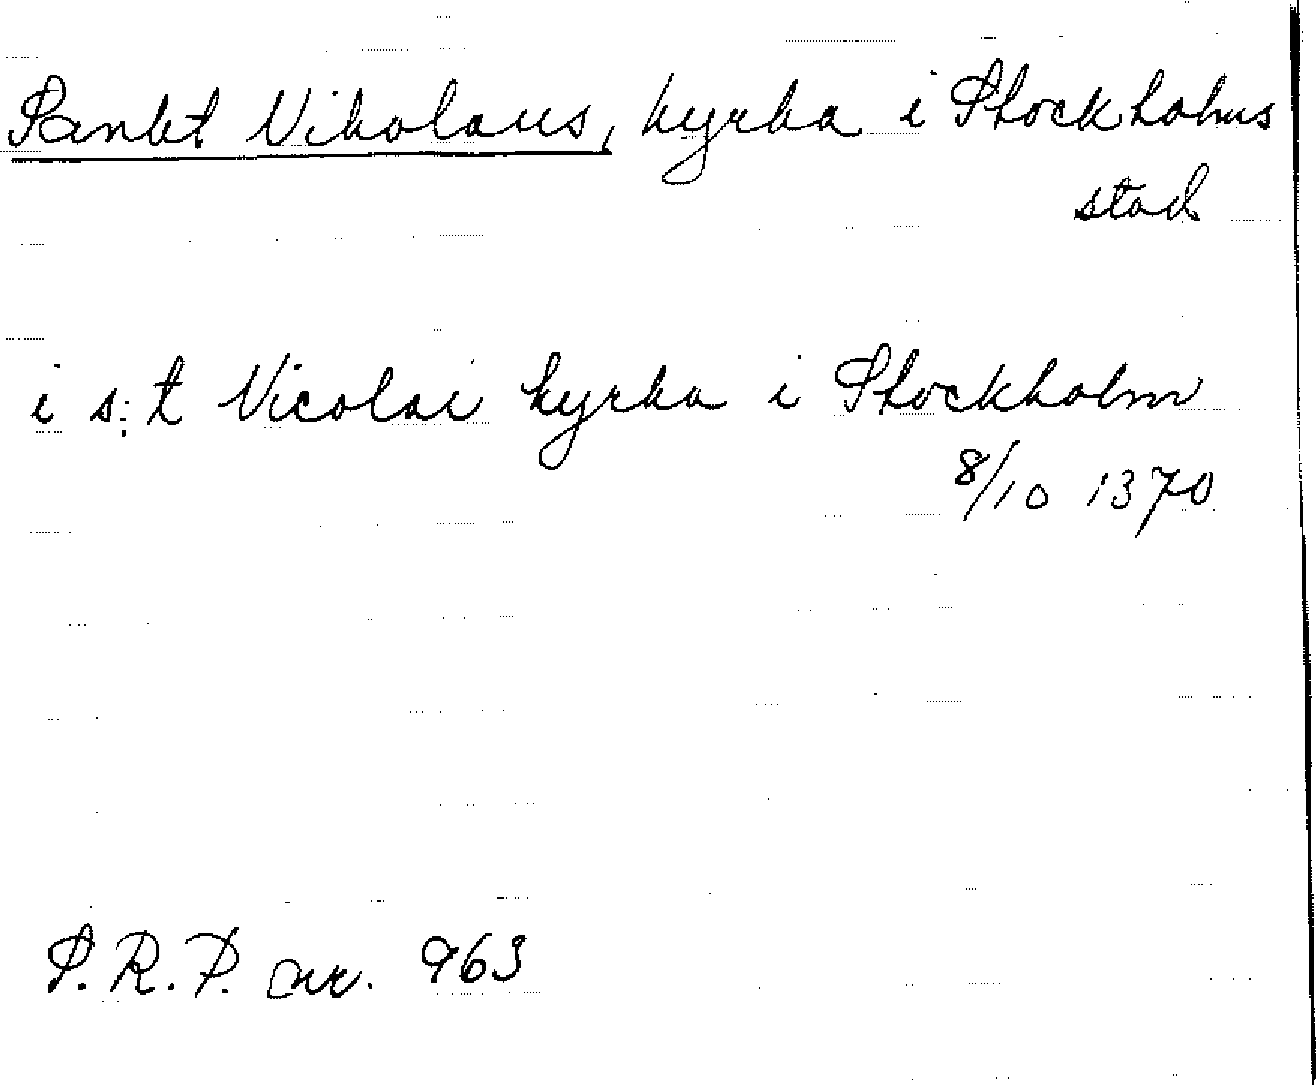 Sankt Nikolaus, kyrka i Stockholms
stad
i s:t Nicolai kyrka i Stockholm
8/10 1370
S.R.P. nr. 963